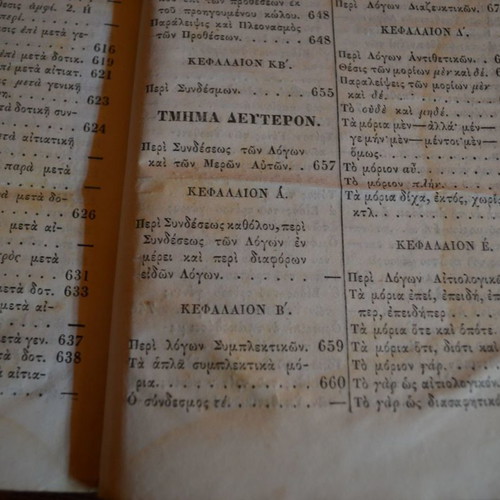 θεσις ἀμφί. 2. Ἡ
περί.
σεις ἐπὶ μετὰ γε-
616
ἐπὶ μετὰ δοτικ. 619
πὶ μετὰ αἰτιατ. 621
σεις μετὰ γενικῆ
623
τὰ δοτικῆ συν-
624
ὰ αἰτιατικὴ
παρὰ μετὰ
μετὰ δο-
626
μετὰ αἰ-
πρὸς μετὰ
631
μετὰ δοτ. 633
μετὰ αἰ-
μετὰ γεν. 637
μετὰ δοτ. 638
τὰ αἰτια-
τῶν προθέσεων ἐκ
τοῦ προηγουμένου κώλου. 648
Παράλειψις καὶ Πλεονασμὸς
τῶν Προθέσεων. 648
ΚΕΦΑΛΑΙΟΝ ΚΒ΄.
Περὶ Συνδέσμων. 655
ΤΜΗΜΑ ΔΕΥΤΕΡΟΝ.
Περὶ Συνδέσεως τῶν Λόγων
καὶ τῶν Μερῶν Αὐτῶν. 657
ΚΕΦΑΛΑΙΟΝ Α΄.
Περὶ Συνδέσεως καθόλου, περὶ
Συνδέσεως τῶν Λόγων ἐν
μέρει καὶ περὶ διαφόρων
εἰδῶν Λόγων. —
ΚΕΦΑΛΑΙΟΝ Β΄.
Περὶ λόγων Συμπλεκτικῶν. 659
Τὰ ἁπλᾶ συμπλεκτικὰ μό-
ρια. 660
Ὁ σύνδεσμος τέ. —
Περὶ Λόγων Διαζευκτικῶν.
ΚΕΦΑΛΑΙΟΝ Δ΄.
Περὶ Λόγων Ἀντιθετικῶν.
Θέσις τῶν μορίων μὲν καὶ δέ.
Παραλείψεις τῶν μορίων μὲν
καὶ δέ.
Τὸ οὐδὲ καὶ μηδέ.
Τὰ μόρια μὲν—ἀλλά· μὲν—
γε μήν· μὲν—μέντοι· μὲν—
ὅμως.
Τὸ μόριον αὖ.
Τὸ μόριον πλήν.
Τὰ μόρια δίχα, ἐκτός, χωρὶς
κτλ.
ΚΕΦΑΛΑΙΟΝ Ε΄.
Περὶ Λόγων Αἰτιολογικῶν
Τὰ μόρια ἐπεί, ἐπειδή, ἐπεί
περ, ἐπειδήπερ
Τὰ μόρια ὅτε καὶ ὁπότε.
Τὰ μόρια ὅτι, διότι καὶ
Τὸ μόριον γάρ.
Τὸ γὰρ ὡς αἰτιολογικόν
Τὸ γὰρ ὡς διασαφητικόν